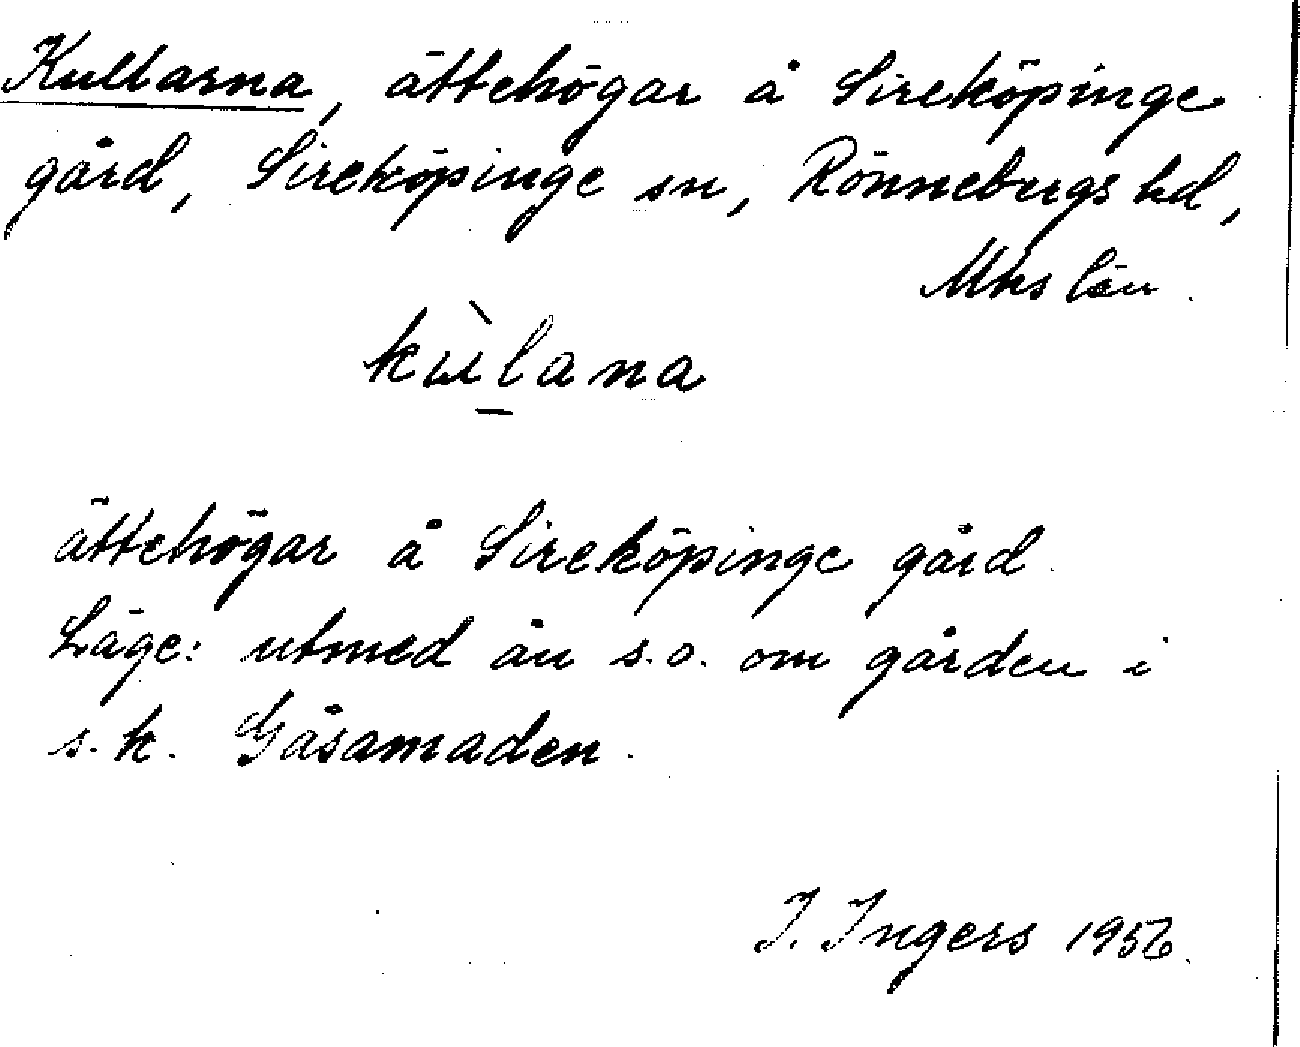 Kullarna, ättehögar å Sireköpinge
gård, Sireköpinge sn, Rönnebergs hd,
Mhs län.
kùlana
ättehögar å Sireköpinge gård.
Läge: utmed ån s.o. om gården i
s.k. Gåsamaden.
I. Ingers 1956.